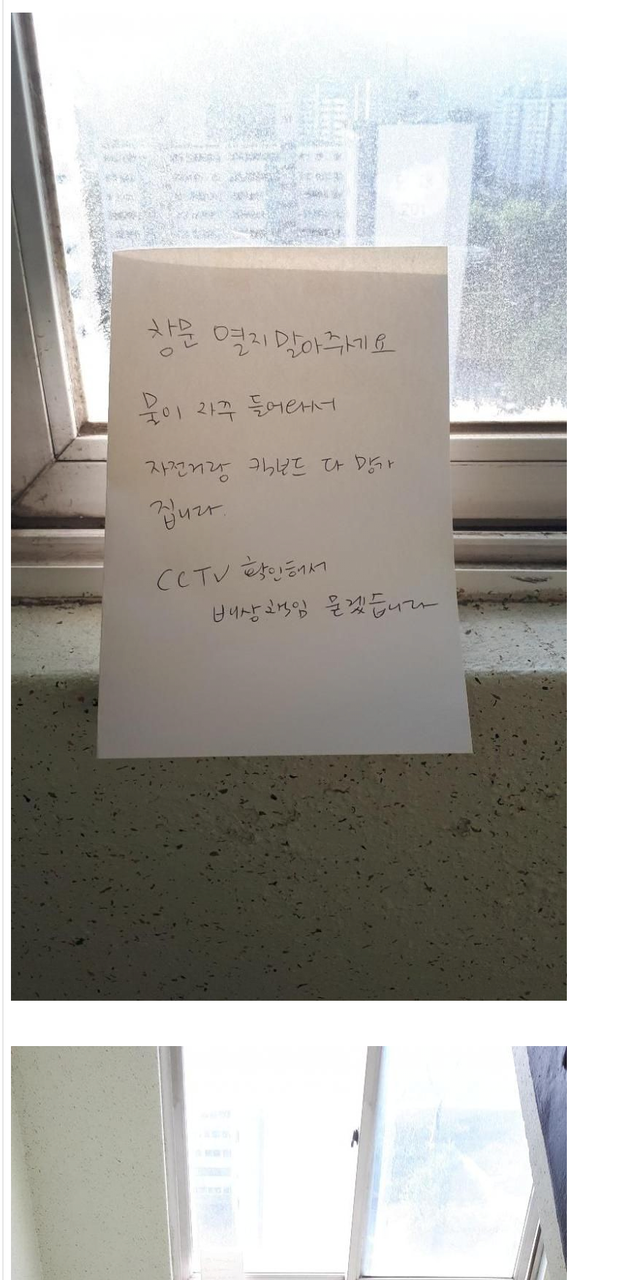 창문 열지 말아주세요
물이 자주 들어와서
자전거랑 킥보드 다 망가
집니다.
CCTV 확인해서
배상책임 묻겠습니다